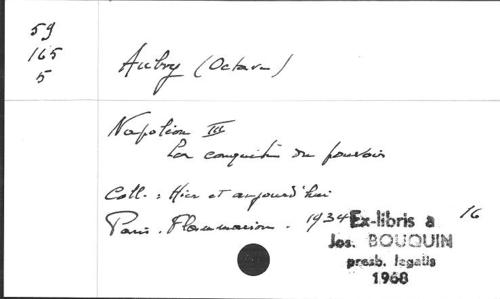 59
165
5
Aubry (Octave)
Napoléon III
La conquête du pouvoir
Coll. : Hier et aujourd'hui
Paris. Flammarion. 1934 16
Ex-libris a
Jos. BOUQUIN
presb. legatis
1968